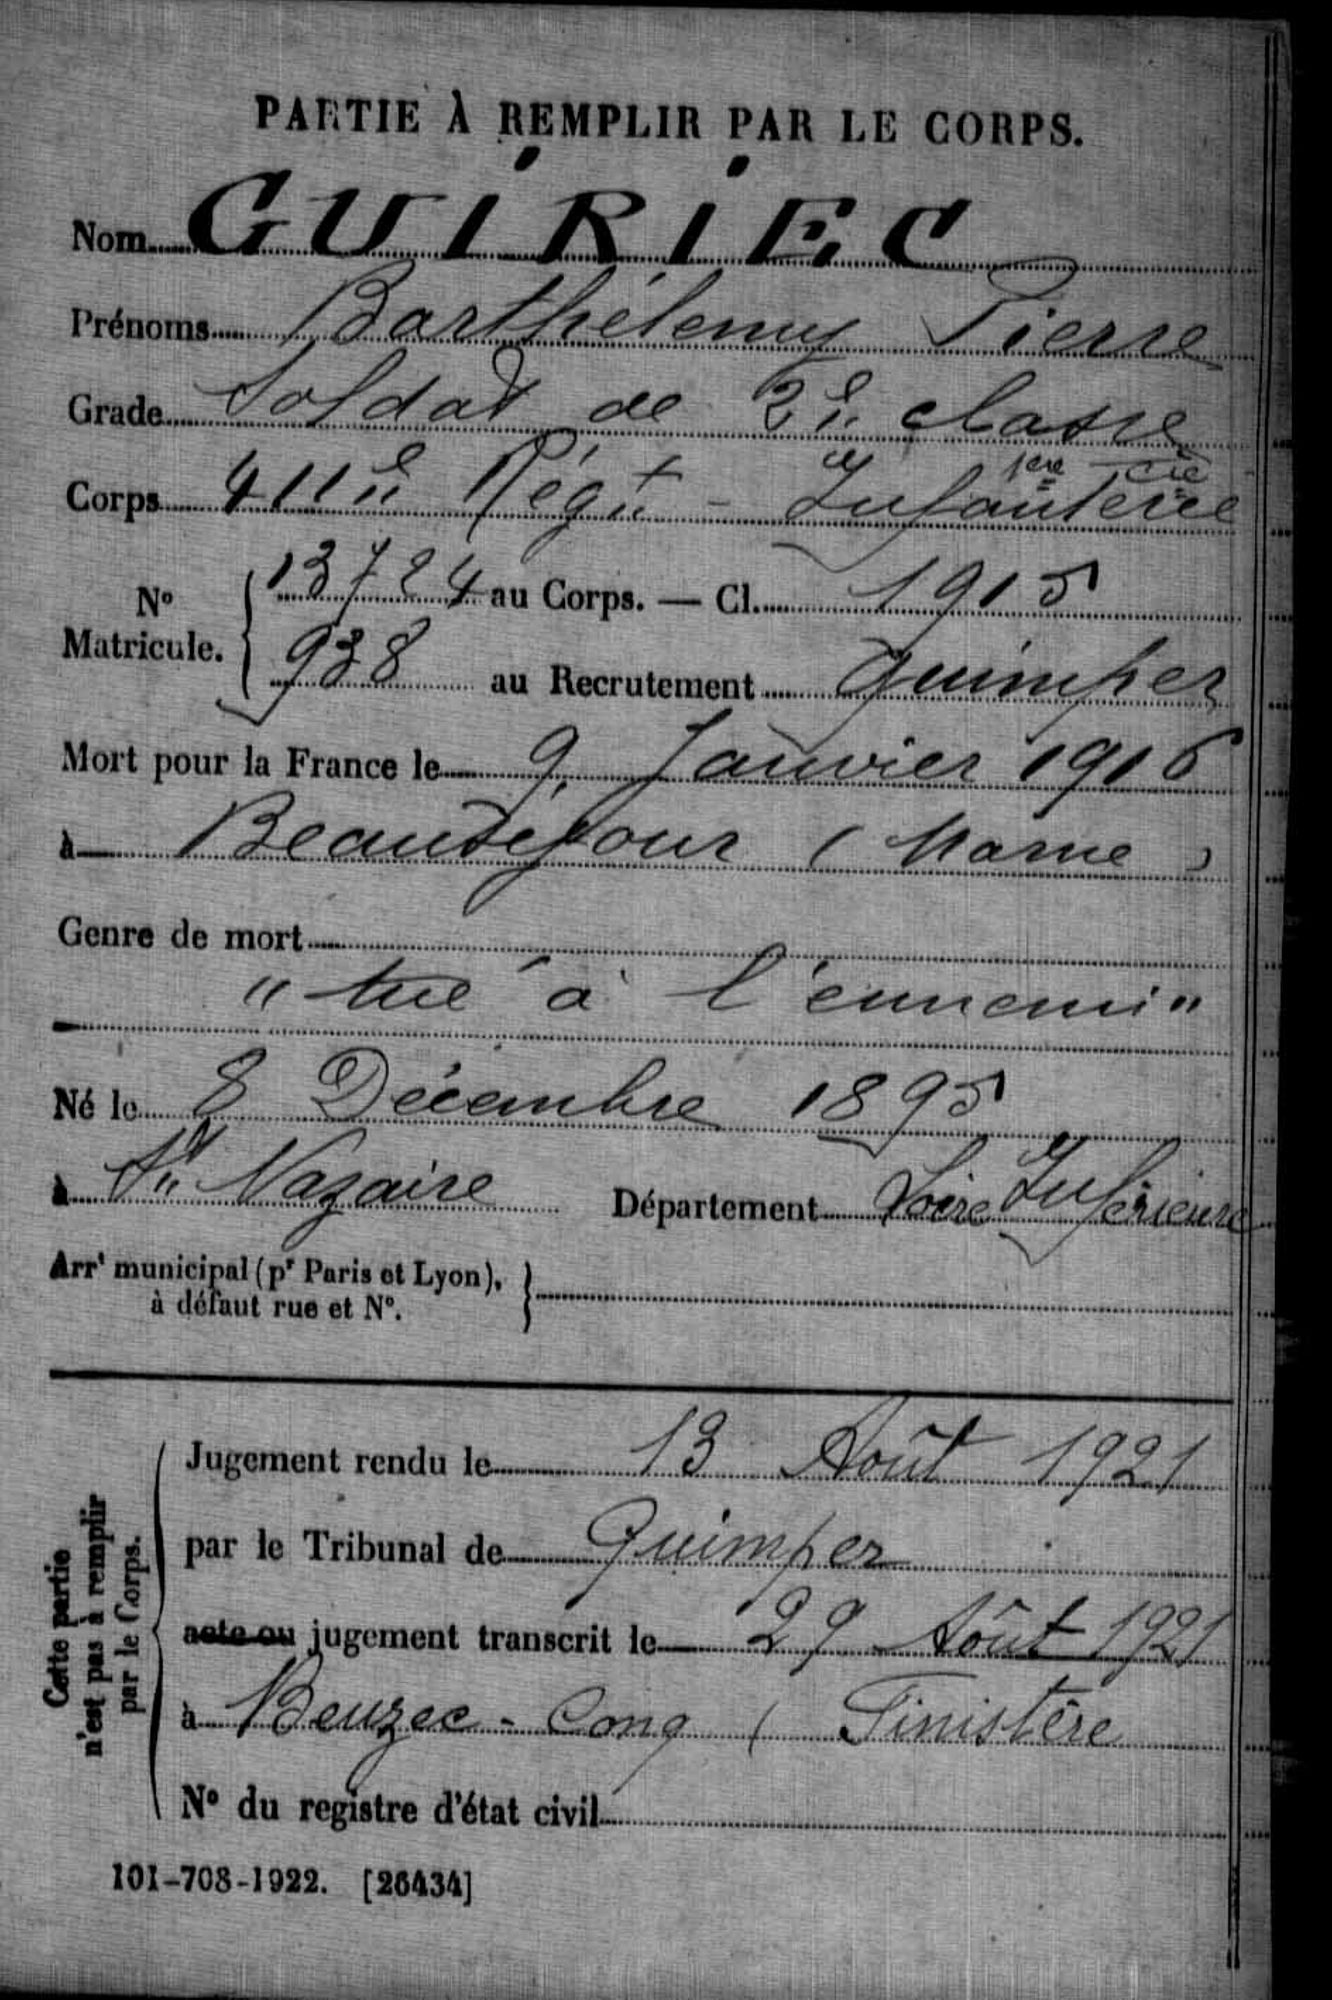 PARTIE À REMPLIR PAR LE CORPS.
Nom GUIRIEC
Prénoms Barthélemy Pierre
Grade Soldat de 2e classe
1ere Cie
Corps 411e Régt - Infanterie
No Matricule. { 13724 au Corps. — Cl. 1915
938 au Recrutement Quimper
Mort pour la France le 9 Janvier 1916
à Beauséjour (Marne)
Genre de mort
"tué à l'ennemi"
Né le 8 Décembre 1895
à St Nazaire Département Loire Inférieure
Arrt municipal (pr Paris et Lyon), }
à défaut rue et No.
Cette partie
n'est pas à remplir
par le Corps.
Jugement rendu le 13 Août 1921
par le Tribunal de Quimper
acte ou jugement transcrit le 29 Août 1921
à Beuzec-Conq (Finistère
No du registre d'état civil
101-708-1922. [26434]